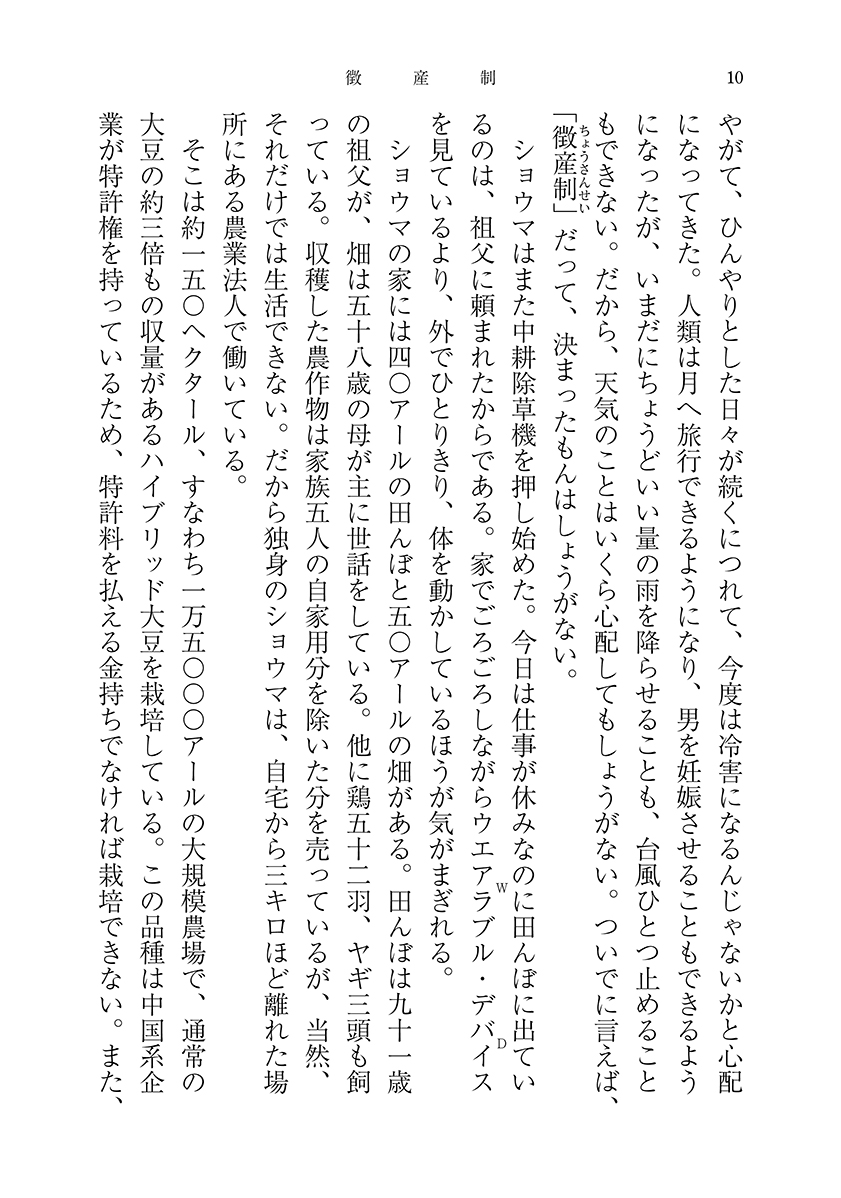 徴産制
10
やがて、ひんやりとした日々が続くにつれて、今度は冷害になるんじゃないかと心配
になってきた。人類は月へ旅行できるようになり、男を妊娠させることもできるよう
になったが、いまだにちょうどいい量の雨を降らせることも、台風ひとつ止めること
もできない。だから、天気のことはいくら心配してもしょうがない。ついでに言えば、
ちょうさんせい
「徴産制」だって、決まったもんはしょうがない。
ショウマはまた中耕除草機を押し始めた。今日は仕事が休みなのに田んぼに出てい
W D
るのは、祖父に頼まれたからである。家でごろごろしながらウエアラブル・デバイス
を見ているより、外でひとりきり、体を動かしているほうが気がまぎれる。
ショウマの家には四〇アールの田んぼと五〇アールの畑がある。田んぼは九十一歳
の祖父が、畑は五十八歳の母が主に世話をしている。他に鶏五十二羽、ヤギ三頭も飼
っている。収穫した農作物は家族五人の自家用分を除いた分を売っているが、当然、
それだけでは生活できない。だから独身のショウマは、自宅から三キロほど離れた場
所にある農業法人で働いている。
そこは約一五〇ヘクタール、すなわち一万五〇〇〇アールの大規模農場で、通常の
大豆の約三倍もの収量があるハイブリッド大豆を栽培している。この品種は中国系企
業が特許権を持っているため、特許料を払える金持ちでなければ栽培できない。また、